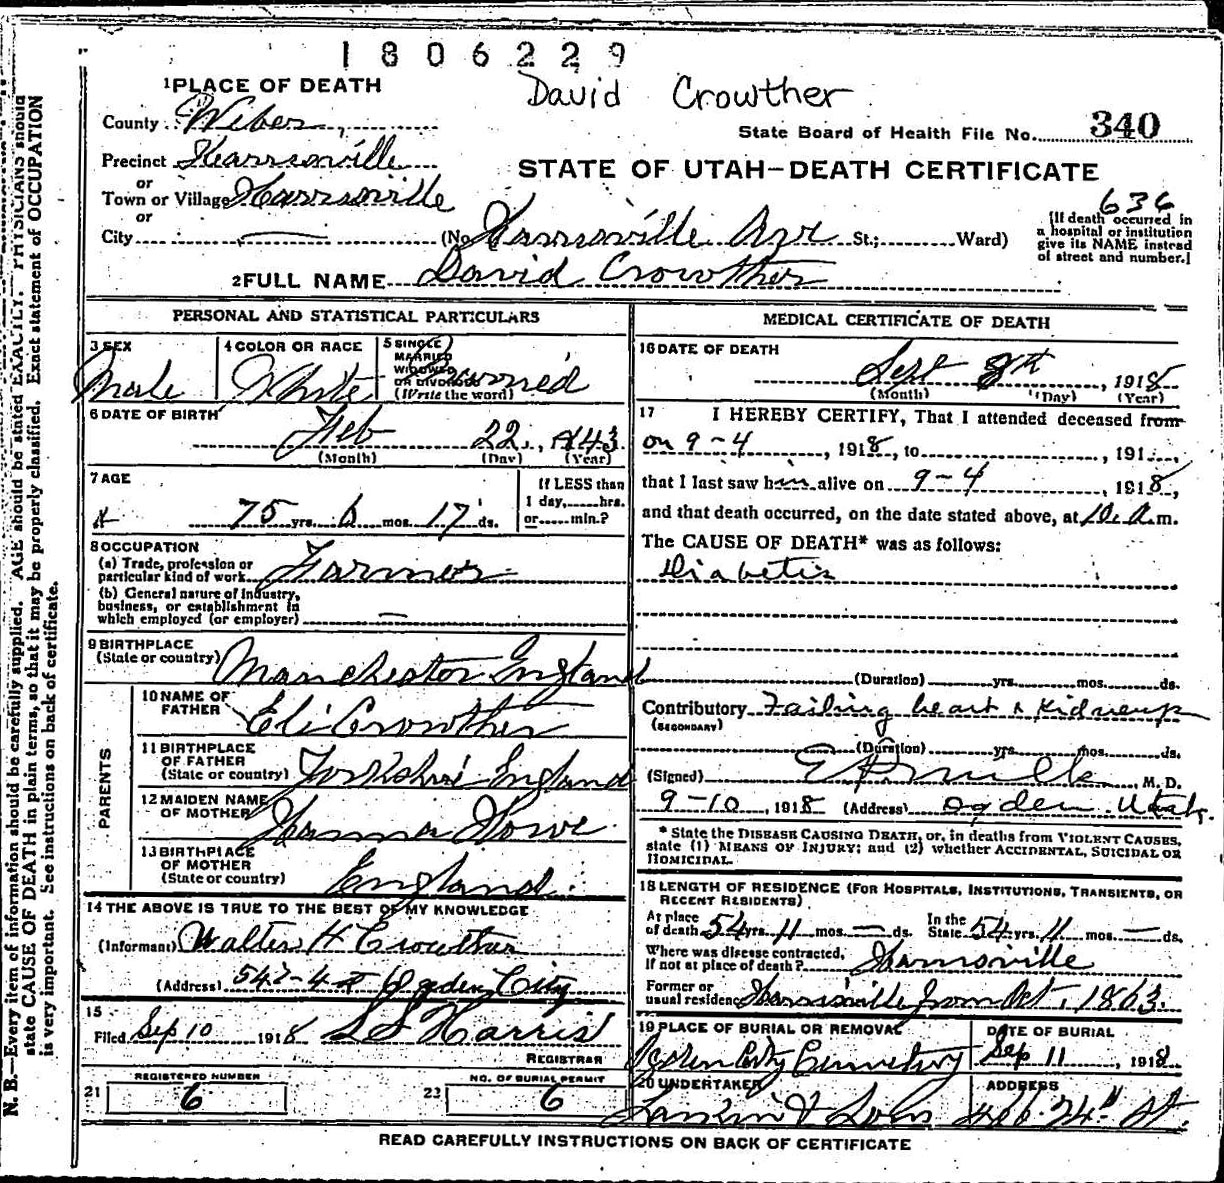 1806229
David Crowther
1 PLACE OF DEATH
County Weber
State Board of Health File No. 340
Precinct Harrisville
or
STATE OF UTAH—DEATH CERTIFICATE
Town or Village Harrisville
or
636
City (No. Harrisville St.; Ward)
[If death occurred in
a hospital or institution
give its NAME instead
of street and number.]
2 FULL NAME David Crowther
PERSONAL AND STATISTICAL PARTICULARS
3 SEX
Male
4 COLOR OR RACE
White
5 SINGLE
MARRIED
WIDOWED
OR DIVORCED
(Write the word)
Married
6 DATE OF BIRTH
Feb 22, 1843
(Month) (Day) (Year)
7 AGE
75 yrs. 6 mos. 17 ds.
If LESS than
1 day, hrs.
or min.?
8 OCCUPATION
(a) Trade, profession or
particular kind of work Farmer
(b) General nature of Industry,
business, or establishment in
which employed (or employer) —
9 BIRTHPLACE
(State or country) Manchester England
PARENTS
10 NAME OF
FATHER Eli Crowther
11 BIRTHPLACE
OF FATHER
(State or country) Yorkshire England
12 MAIDEN NAME
OF MOTHER
13 BIRTHPLACE
OF MOTHER
(State or country) England
14 THE ABOVE IS TRUE TO THE BEST OF MY KNOWLEDGE
(Informant) Walter H Crowther
(Address) 542-4 Ogden City
15
Filed Sep 10 1918 Harris
REGISTRAR
21 REGISTERED NUMBER
6
23 NO. OF BURIAL PERMIT
6
MEDICAL CERTIFICATE OF DEATH
16 DATE OF DEATH
Sept 8th, 1918
(Month) (Day) (Year)
17 I HEREBY CERTIFY, That I attended deceased from
on 9-4, 1918, to , 191 ,
that I last saw him alive on 9-4, 1918,
and that death occurred, on the date stated above, at 10 a.m.
The CAUSE OF DEATH* was as follows:
Diabetis
(Duration) yrs. mos. ds.
Contributory Failing heart & Kidneys
(SECONDARY)
(Duration) yrs. mos. ds.
(Signed) M. D.
9-10, 1918 (Address) Ogden Utah.
* State the DISEASE CAUSING DEATH, or, in deaths from VIOLENT CAUSES,
state (1) MEANS OF INJURY; and (2) whether ACCIDENTAL, SUICIDAL OR
HOMICIDAL.
18 LENGTH OF RESIDENCE (FOR HOSPITALS, INSTITUTIONS, TRANSIENTS, OR
RECENT RESIDENTS)
At place
of death 54 yrs. 11 mos. — ds.
In the
State 54 yrs. 11 mos. — ds.
Where was disease contracted,
if not at place of death? Harrisville
Former or
usual residence Harrisville from Oct, 1863.
19 PLACE OF BURIAL OR REMOVAL
Ogden City Cemetery
DATE OF BURIAL
Sep 11, 1918
20 UNDERTAKER
Larkin & Sons
ADDRESS
24th St.
READ CAREFULLY INSTRUCTIONS ON BACK OF CERTIFICATE
N. B.—Every item of information should be carefully supplied. AGE should be stated EXACTLY. PHYSICIANS should
state CAUSE OF DEATH in plain terms, so that it may be properly classified. Exact statement of OCCUPATION
is very important. See instructions on back of certificate.